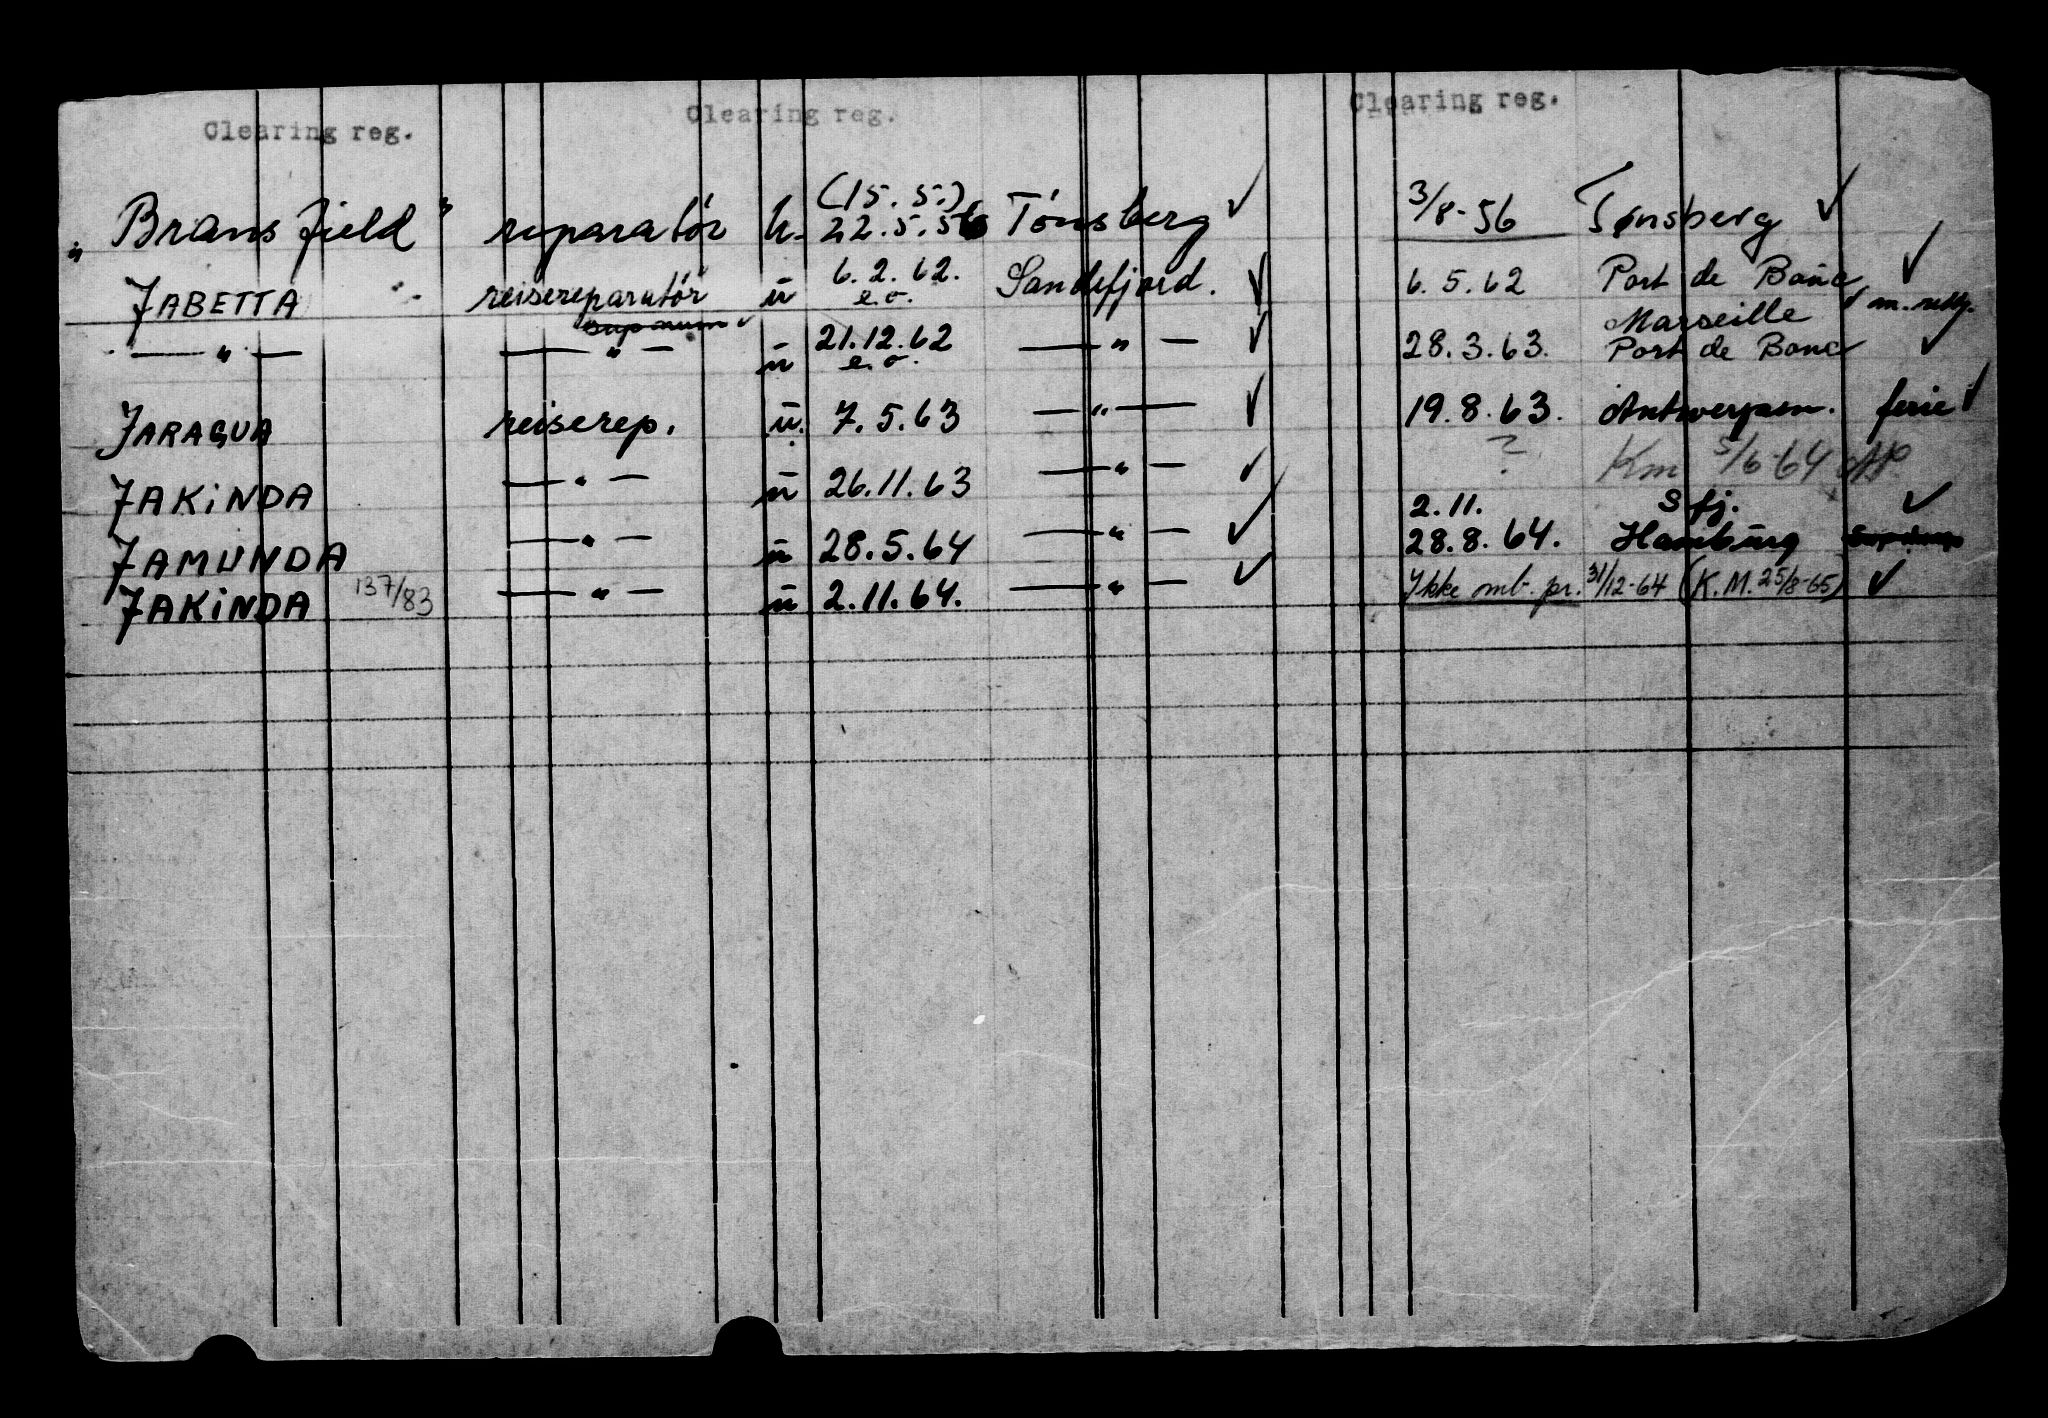 Clearing reg. Clearing reg. Clearing reg.
"Bransfield" reparatør h. (15.5.) 22.5.56 Tønsberg ✓ 3/8-56 Tønsberg ✓
JABETTA reisereparatør u 6.2.62. e.o. Sandefjord. ✓ 6.5.62 Port de Bouc ✓
Marseille ✓
— " — — " — u 21.12.62 e.o. — " — ✓ 28.3.63. Port de Bouc ✓
JARAGUA reiserep. u. 7.5.63 — " — ✓ 19.8.63. Antwerpen. ferie ✓
JAKINDA — " — u 26.11.63 — " — ✓ ? Km 5/6-64
2.11. Sfj. ✓
JAMUNDA — " — u 28.5.64 — " — ✓ 28.8.64. Hamburg
JAKINDA 137/83 — " — u 2.11.64. — " — ✓ Ikke omb. pr. 31/12-64 (K.M. 25/8-65) ✓